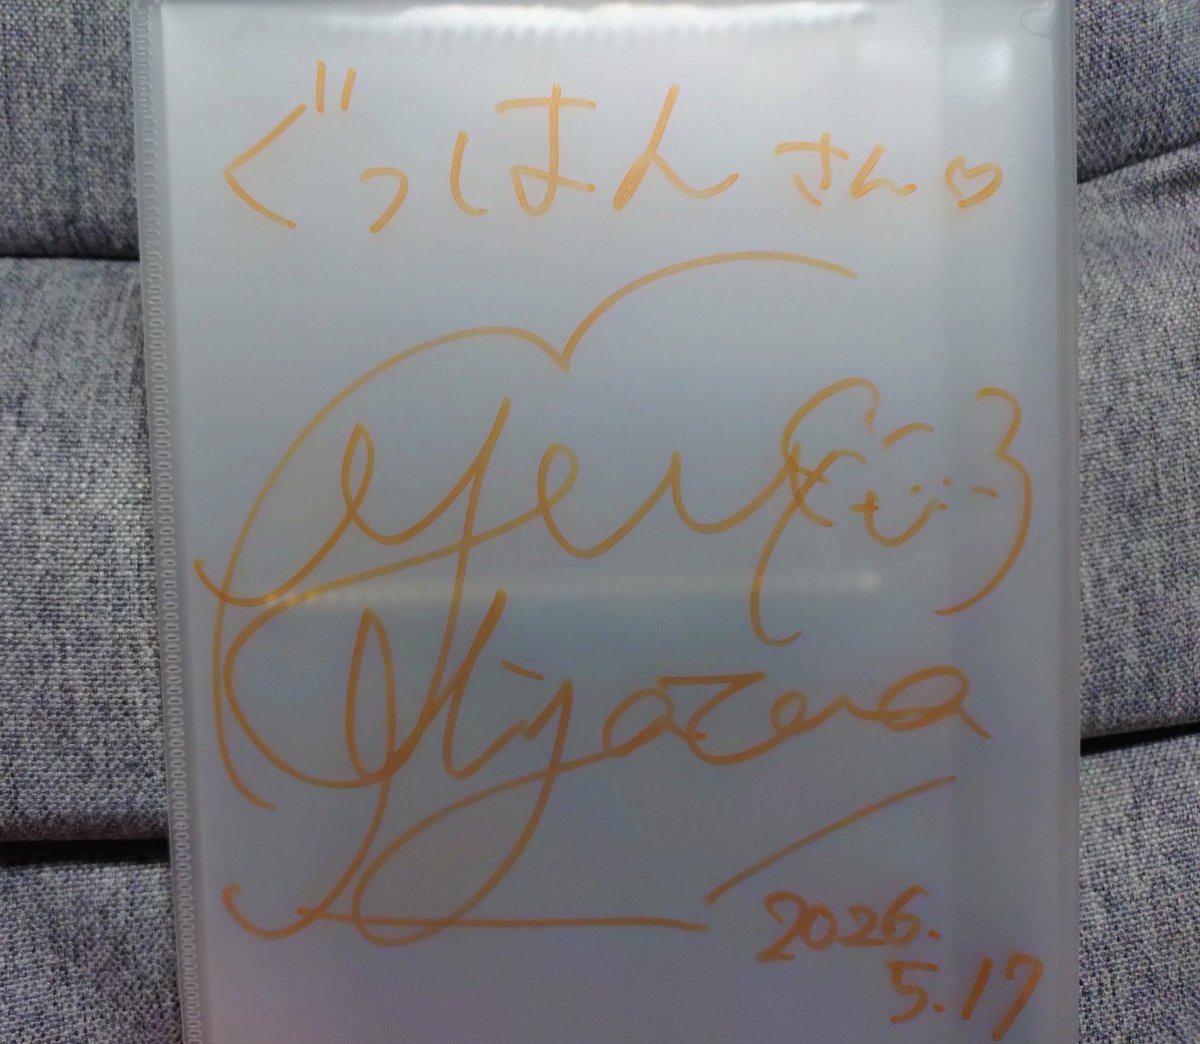 ぐっはんさん♡
Miyazawa
2026.
5.17